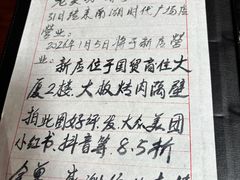 31日结束南湖时代广场店
营业:
2026年1月5日将于新店营
业。
新店位于国贸商住大
厦2楼.大敌烤肉隔壁
拍此图好评发.大众.美团
小红书.抖音等8.5折